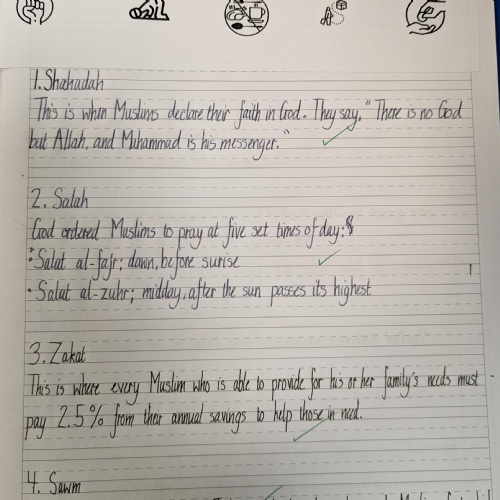 1. Shahadah
This is when Muslims declare their faith in God. They say, "There is no God
but Allah, and Muhammad is his messenger."
2. Salah
God ordered Muslims to pray at five set times of day:
• Salat al-fajr; dawn, before surise
• Salat al-zuhr; midday, after the sun passes its highest
3. Zakat
This is where every Muslim who is able to provide for his or her family's needs must
pay 2.5% from their annual savings to help those in need.
4. Sawm